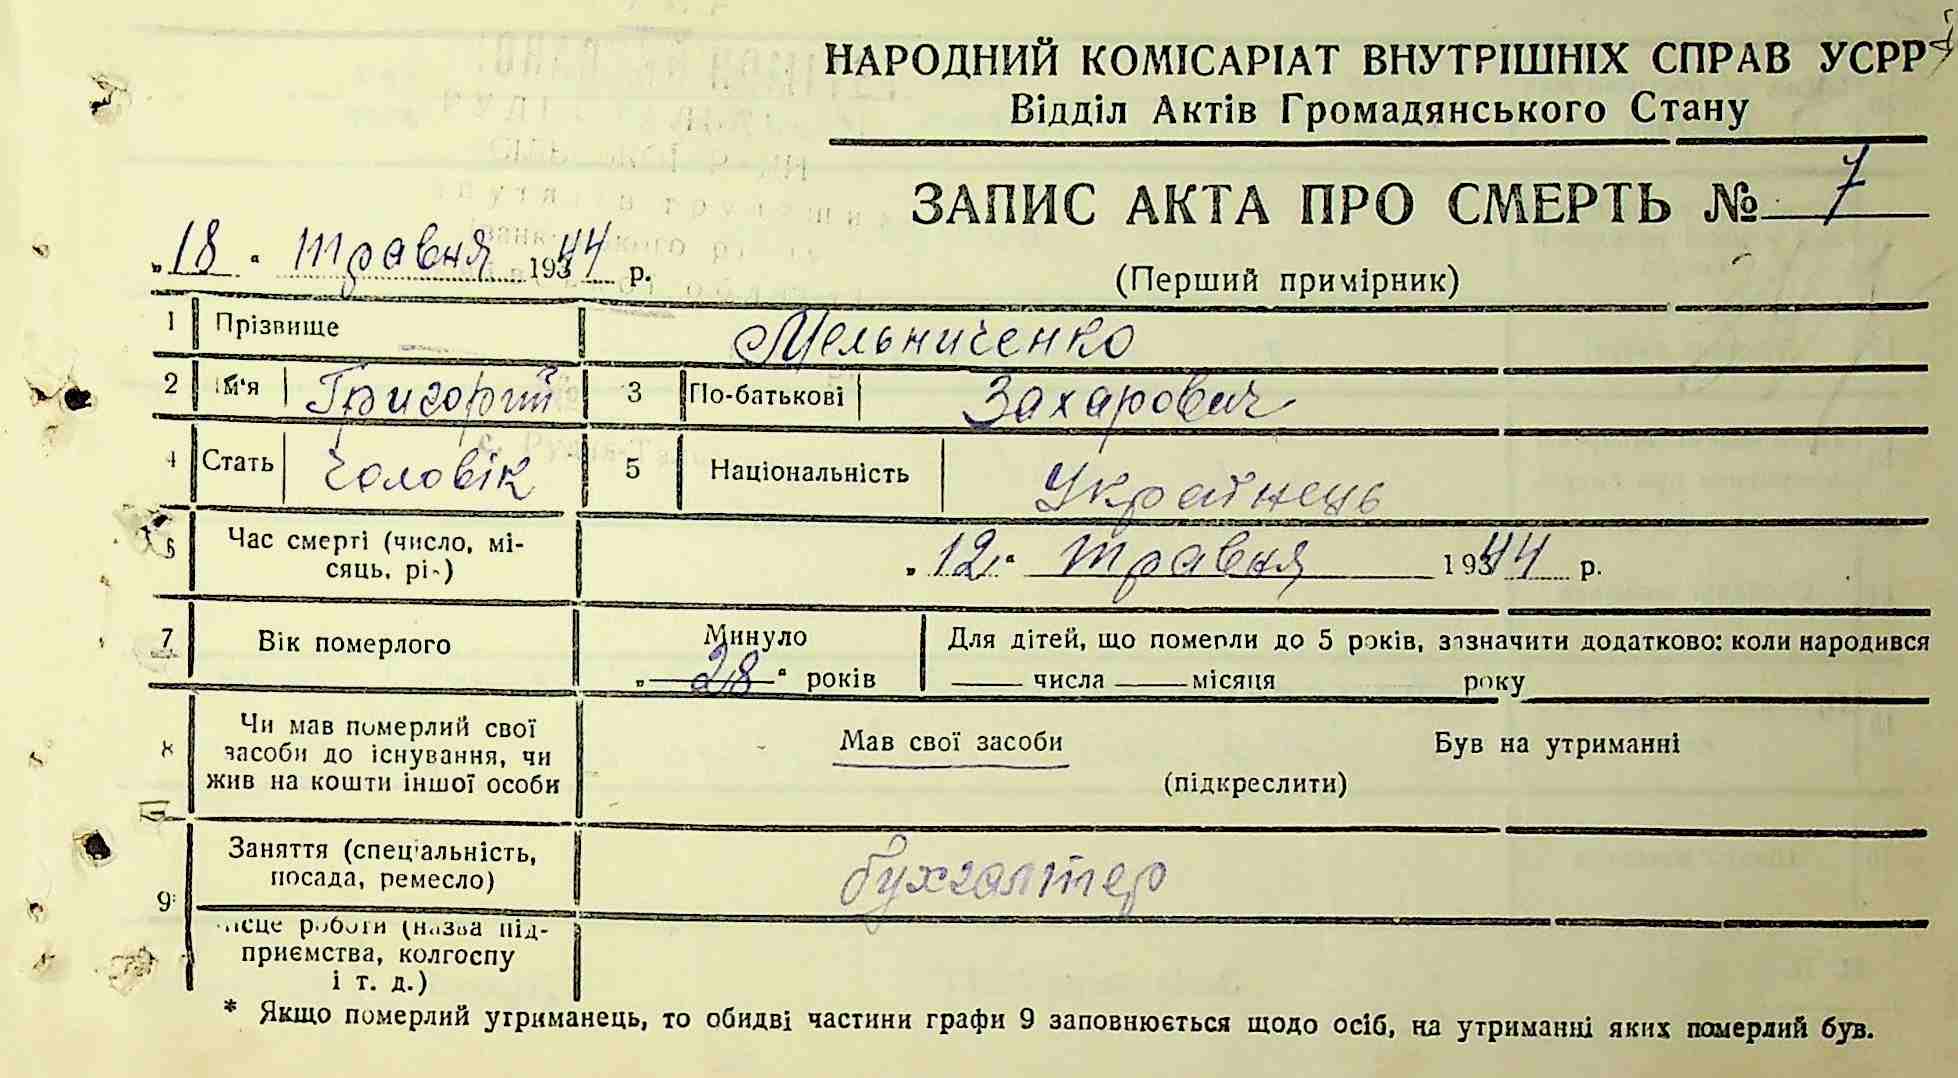 НАРОДНИЙ КОМІСАРІАТ ВНУТРІШНІХ СПРАВ УСРР
Відділ Актів Громадянського Стану
ЗАПИС АКТА ПРО СМЕРТЬ № 7
„18“ травня 1944 р.
(Перший примірник)
1 Прізвище Мельниченко
2 Ім'я Григорий 3 По-батькові Захарович
4 Стать Чоловік 5 Національність Українець
6 Час смерті (число, мі-
сяць, рік) „12“ травня 1944 р.
7 Вік померлого Минуло Для дітей, що померли до 5 років, зазначити додатково: коли народився
„28“ років числа місяця року
8 Чи мав померлий свої
засоби до існування, чи
жив на кошти іншої особи
Мав свої засоби Був на утриманні
(підкреслити)
9 Заняття (спеціальність,
посада, ремесло) бухгалтер
Місце роботи (назва під-
приємства, колгоспу
і т. д.)
* Якщо померлий утриманець, то обидві частини графи 9 заповнюється щодо осіб, на утриманні яких померлий був.